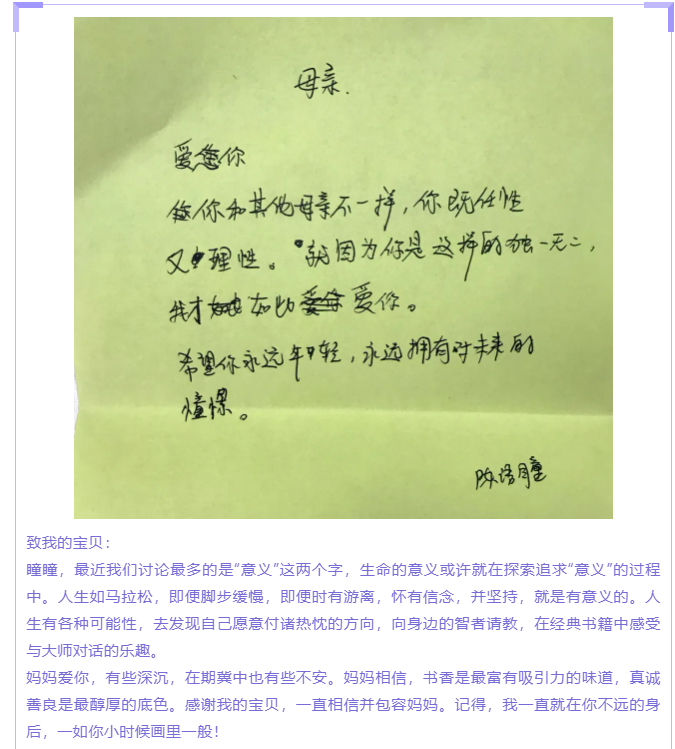 母亲.
爱您你
你和其他母亲不一样，你既任性
又理性。就因为你是这样的独一无二，
我才如此爱你。
希望你永远年轻，永远拥有对未来的
憧憬。
陈语瞳
致我的宝贝：
瞳瞳，最近我们讨论最多的是“意义”这两个字，生命的意义或许就在探索追求“意义”的过程
中。人生如马拉松，即便脚步缓慢，即便时有游离，怀有信念，并坚持，就是有意义的。人
生有各种可能性，去发现自己愿意付诸热忱的方向，向身边的智者请教，在经典书籍中感受
与大师对话的乐趣。
妈妈爱你，有些深沉，在期冀中也有些不安。妈妈相信，书香是最富有吸引力的味道，真诚
善良是最醇厚的底色。感谢我的宝贝，一直相信并包容妈妈。记得，我一直就在你不远的身
后，一如你小时候画里一般！